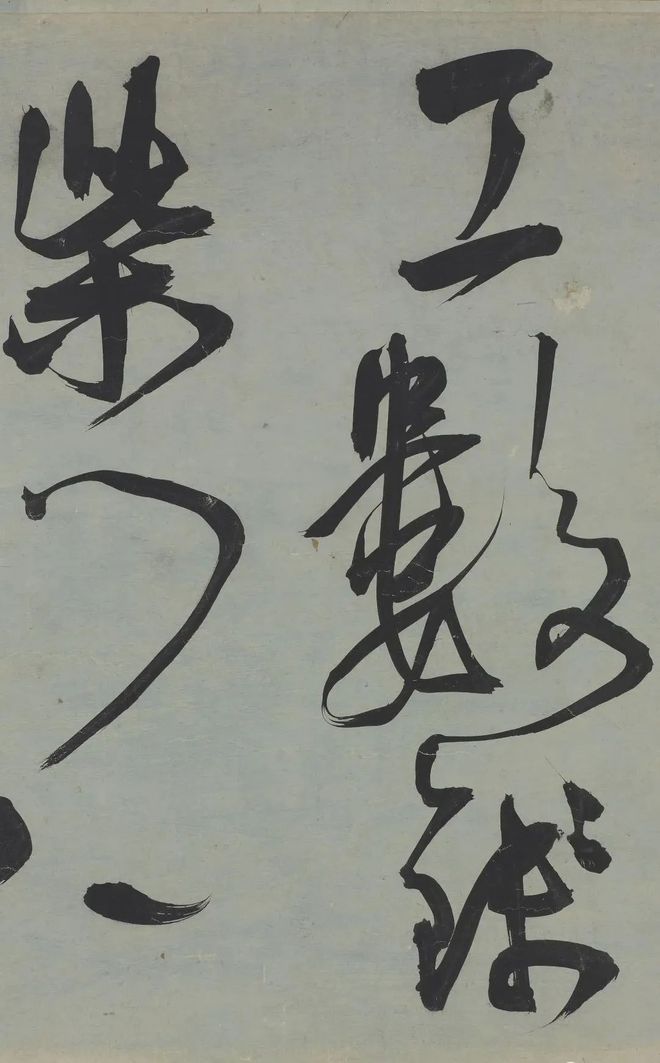 工數錢
柴門